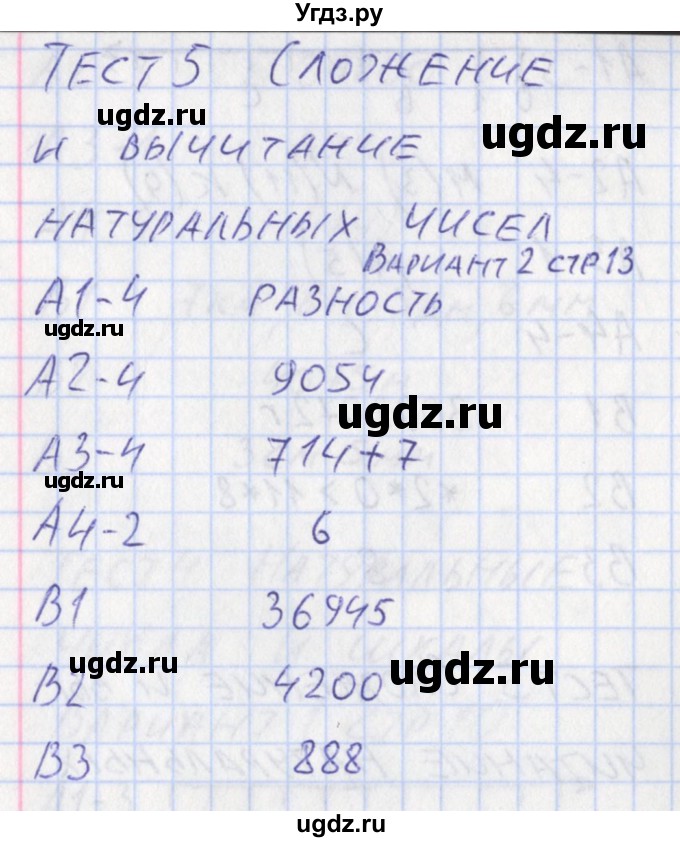 Угдз.ру
ТЕСТ 5 СЛОЖЕНИЕ
ugdz.ru
ugdz.ru
И ВЫЧИТАНИЕ
НАТУРАЛЬНЫХ ЧИСЕЛ
ВАРИАНТ 2 СТР 13
А1-4 РАЗНОСТЬ
ugdz.ru
А2-4 9054
ugdz.ru
А3-4 714+7
ugdz.ru
А4-2 6
В1 36945
ugdz.ru
ugdz.ru
В2 4200
В3 888
ugdz.ru